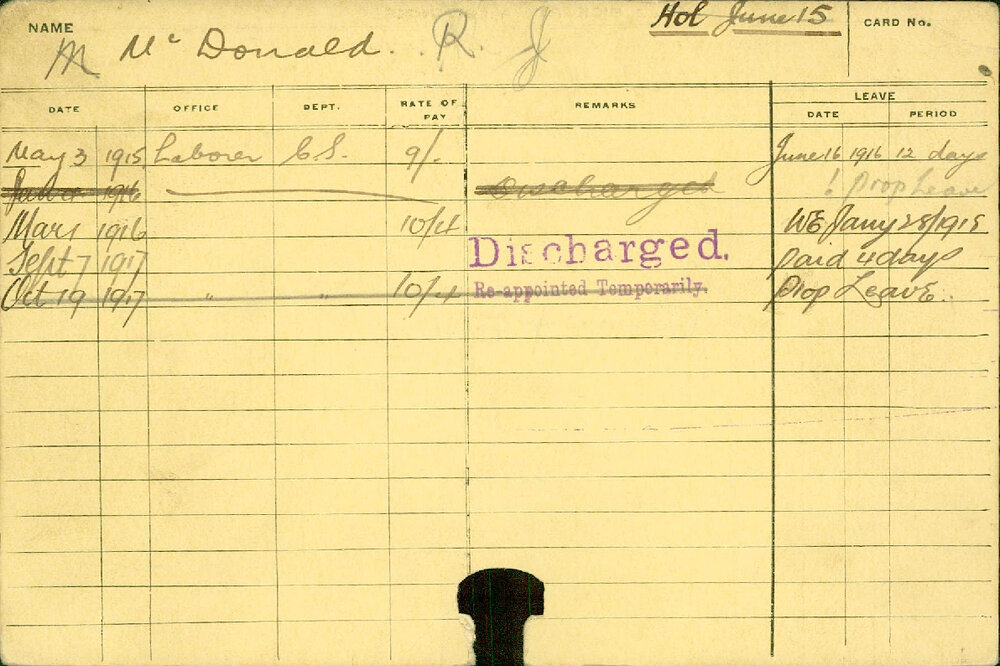 NAME M McDonald. R. J Hol June 15 CARD No.
LEAVE
DATE OFFICE DEPT. RATE OF PAY REMARKS DATE PERIOD
May 3 1915 Laborer C.S. 9/- June 16 1916 12 days
1916 Discharged Prop Leave
Mar 1 1916 10/4 WE Jany 28/1918
Sept 7 1917 Discharged. Paid 4 days
Oct 19 1917 " " 10/4 Re-appointed Temporarily. Prop Leave.